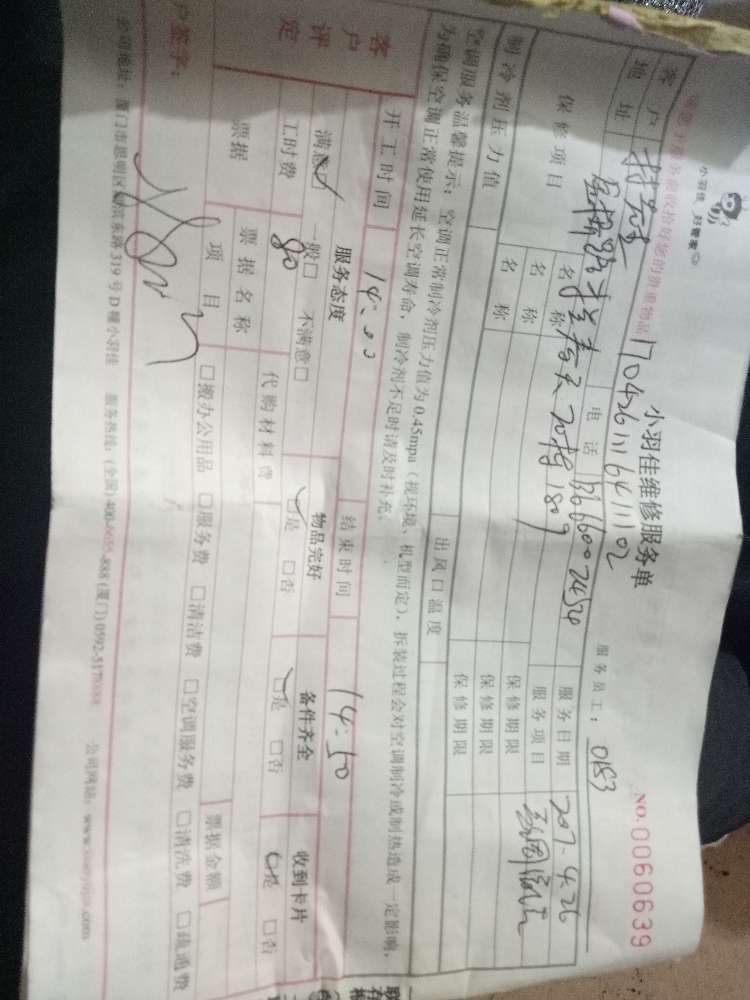 小羽佳 好管家
小羽佳维修服务单
NO.0060639
17042611164111102
服务员工：0183
客户
地址
电话
服务日期
2017-4.26
保修项目
名称
服务项目
名称
保修期限
名称
保修期限
保修期限
制冷剂压力值
出风口温度
空调服务温馨提示：空调正常制冷剂压力值为0.45mpa（视环境、机型而定），拆装过程会对空调制冷或制热造成一定影响，
为确保空调正常使用延长空调寿命，制冷剂不足时请及时补充。
开工时间 14:00 结束时间 14:50
客户评定
服务态度 物品完好 备件齐全 收到卡片
满意□ 一般□ 不满意□ □是 □否 □是 □否 □是 □否
工时费 80 代购材料费
票据 票据名称 票据金额
项目 □搬办公用品 □服务费 □清洁费 □空调服务费 □清洗费 □疏通费
户签字：
公司地址：厦门市思明区 东路319号D幢小羽佳 服务热线：(全国)400-6655-888 (厦门)0592-5178888 公司网站：www.xiaoyujia.com